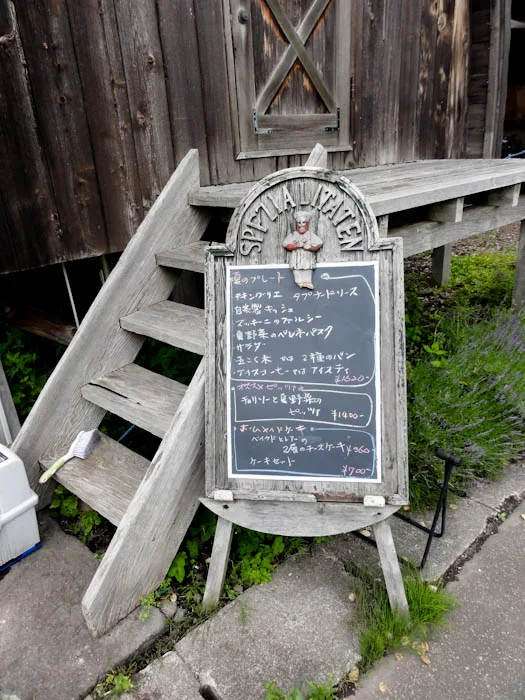 SPEZIALITATEN
夏のプレート
チキングリエ タプナードソース
自家製キッシュ
ズッキーニのファルシー
夏野菜のペンネバスク
サラダ
五こく米 又は 2種のパン
アイスコーヒー又はアイスティ
¥1620-
オススメピッツァ
チョリソーと夏野菜の
ピッツァ ¥1400-
ホームメードケーキ
ベイクドとレアーの
2層のチーズケーキ ¥360
ケーキセット
¥700-